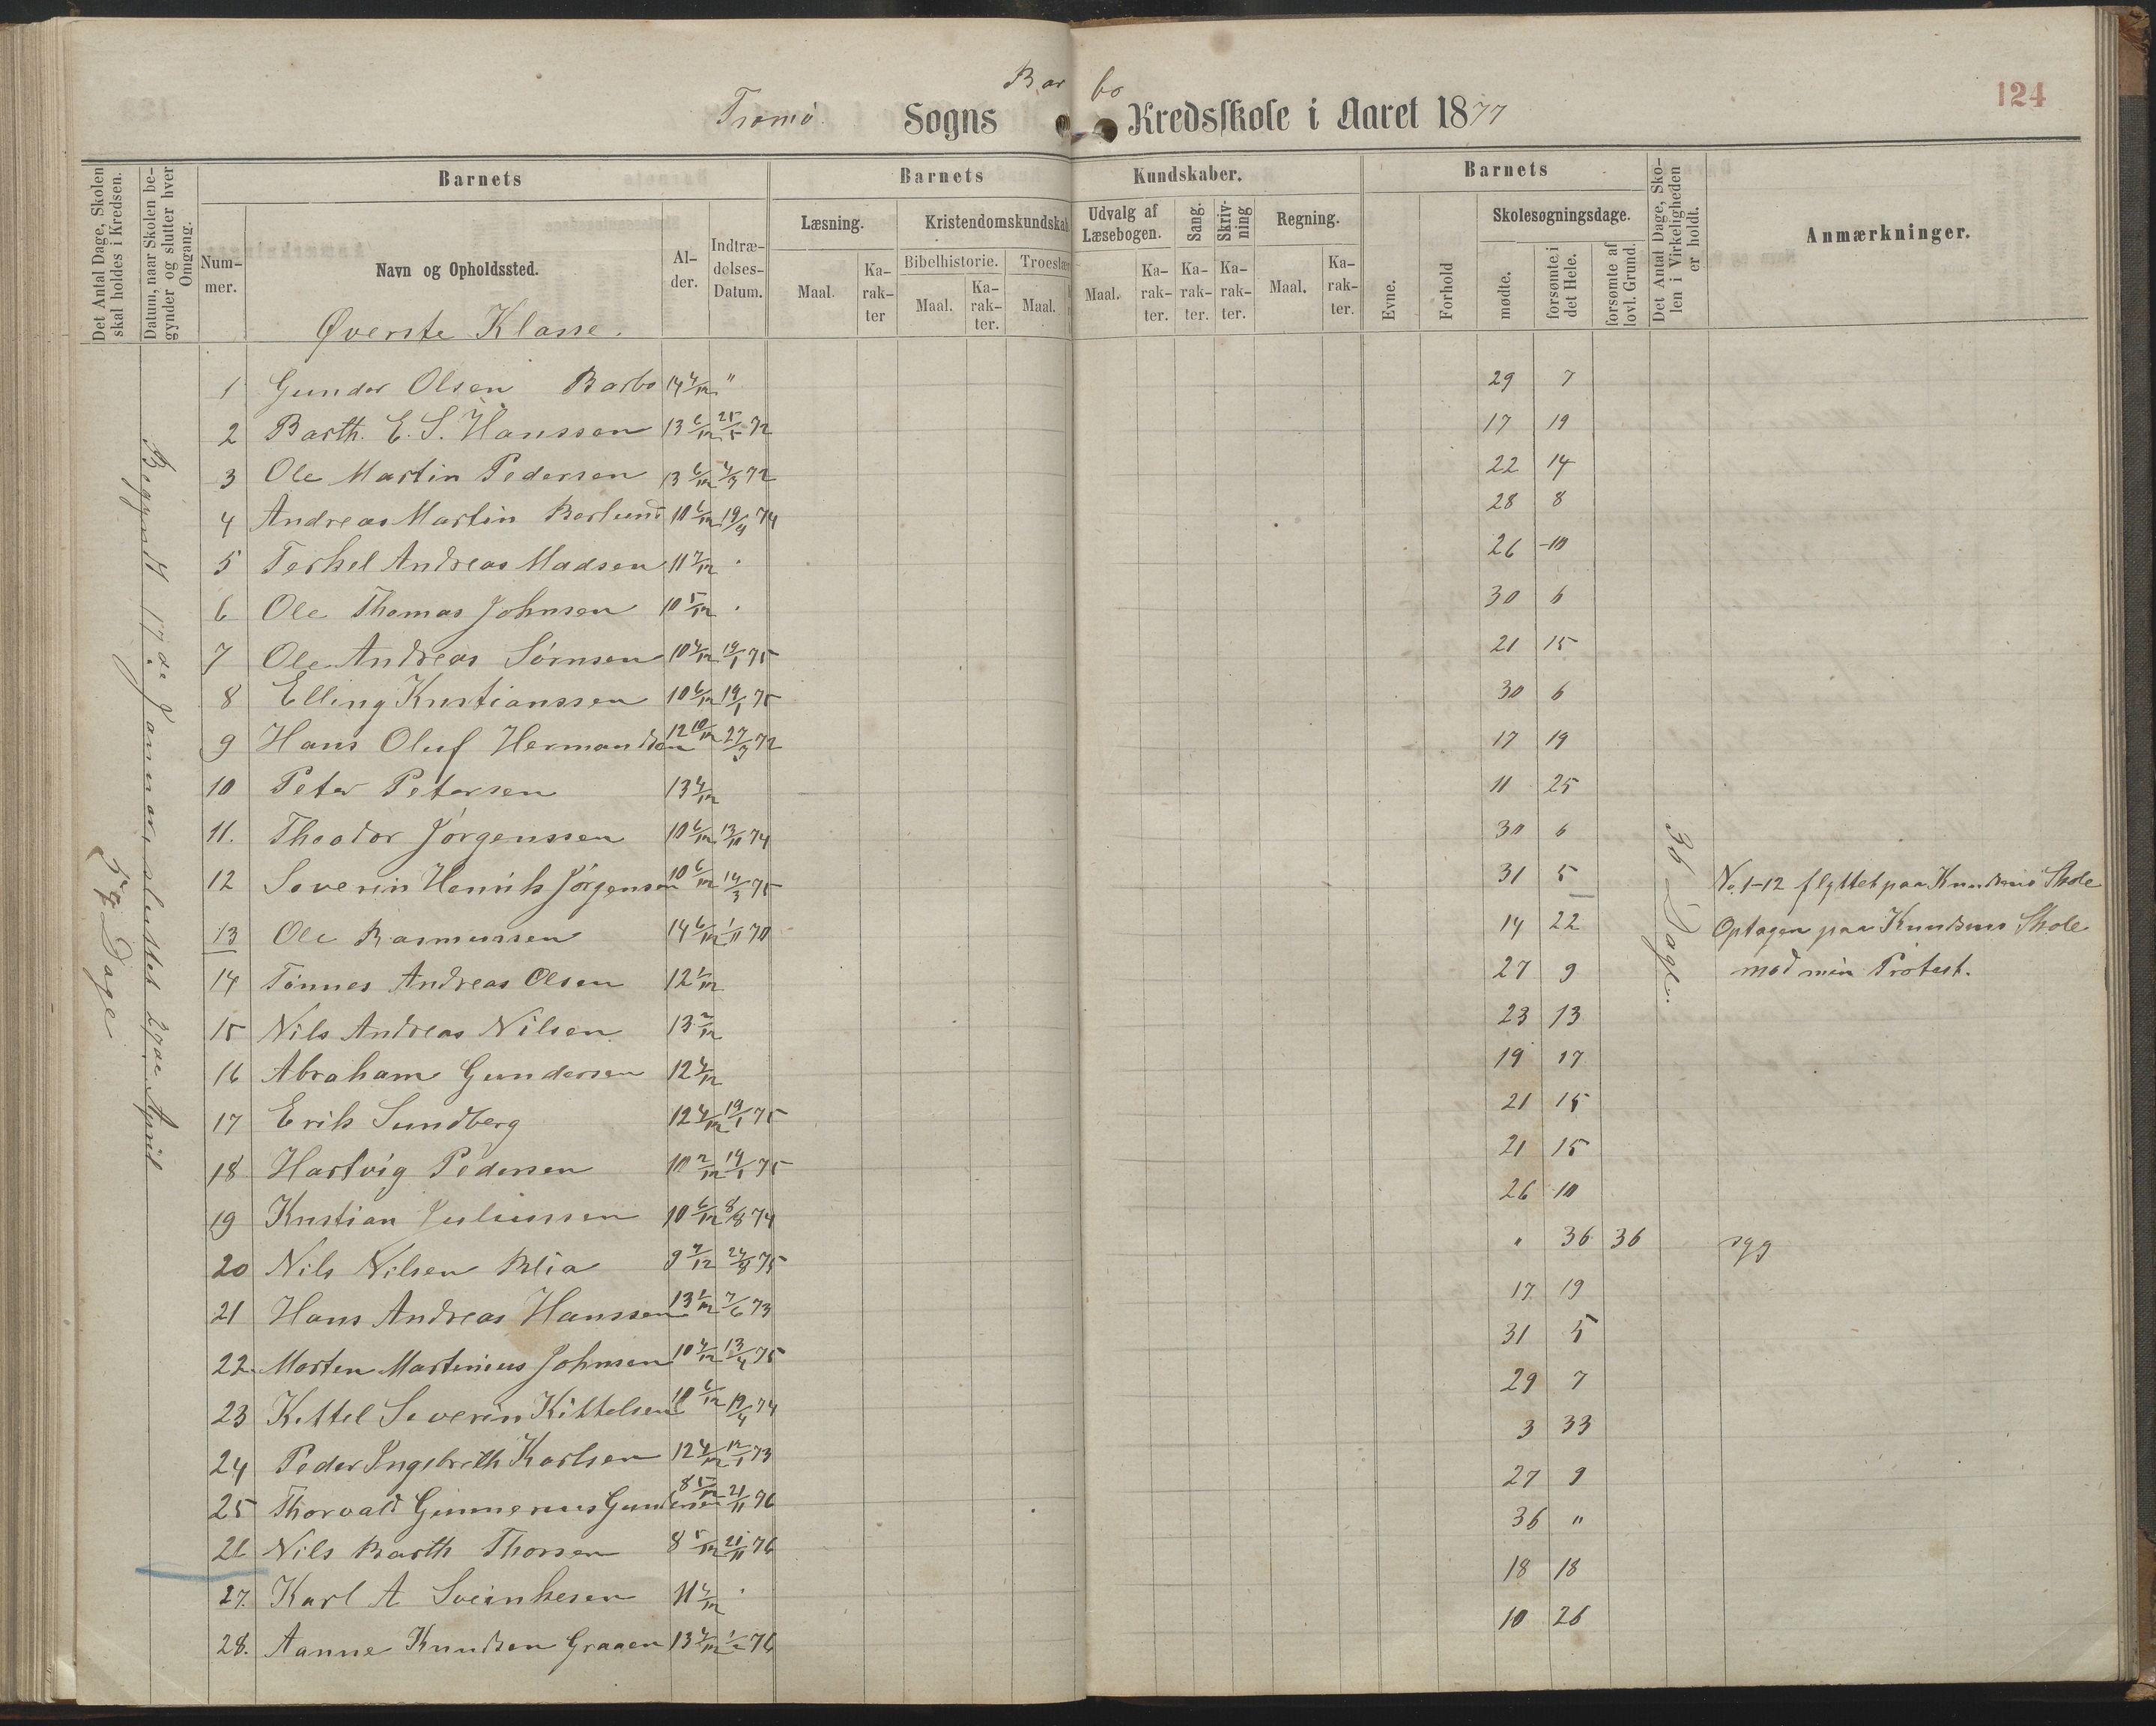 124
Barbo
Tromø Sogns Kredsskole i Aaret 1877
Det Antal Dage, Skolen skal holdes i Kredsen.
Datum, naar Skolen begynder og slutter hver Omgang.
Barnets
Barnets Kundskaber.
Barnets
Det Antal Dage, Skolen i Virkeligheden er holdt.
Anmærkninger.
Nummer.
Navn og Opholdssted.
Alder.
Indtrædelses-Datum.
Læsning.
Kristendomskundskab
Udvalg af Læsebogen.
Sang.
Skrivning
Regning.
Evne.
Forhold
Skolesøgningsdage.
Bibelhistorie.
Troeslær
Maal.
Karakter
Maal.
Karakter.
Maal.
Maal.
Karakter.
Karakter.
Karakter.
Maal.
Karakter.
mødte.
forsømte i det Hele.
forsømte af lovl. Grund.
Øverste Klasse.
Begyndt 17de Januar, sluttet 27de April
Dage
36 Dage.
1 Gunder Olsen Barbo 14 4/12 " 29 7
2 Barth. E. S. Hanssen 13 6/12 25/5 72 17 19
3 Ole Martin Pedersen 13 6/12 4/3 72 22 14
4 Andreas Martin Berlund 10 6/12 19/4 74 28 8
5 Terkel Andreas Madsen 11 7/12 26 10
6 Ole Thomas Johnsen 10 5/12 30 6
7 Ole Andreas Sørnsen 10 4/12 19/1 75 21 15
8 Elling Kristianssen 10 6/12 19/1 75 30 6
9 Hans Oluf Hermandsen 12 10/12 27/3 72 17 19
10 Peter Petersen 13 4/12 11 25
11. Theodor Jørgenssen 10 6/12 13/11 74 30 6
12 Severin Henrik Jørgensen 10 6/12 14/3 75 31 5 No. 1-12 flyttet paa Knudsens Skole
13 Ole Rasmussen 14 6/12 1/11 70 14 22 Optagen paa Knudsens Skole
14 Tønnes Andreas Olsen 12 1/12 27 9 mod min Protest.
15 Nils Andreas Nilsen 13 2/12 23 13
16 Abraham Gundersen 12 4/12 19 17
17 Erik Sundberg 12 4/12 19/1 75 21 15
18 Hartvig Pedersen 10 2/12 19/1 75 21 15
19 Kristian Juliussen 10 6/12 8/8 74 26 10
20 Nils Nilsen Blia 9 7/12 24/8 75 " 36 36 syg
21 Hans Andreas Hanssen 13 1/12 7/6 73 17 19
22. Morten Martinius Johnsen 10 4/12 13/4 75 31 5
23 Kittel Severin Kittelsen 10 6/12 19/4 74 29 7
24 Peder Ingebreth Karlsen 12 4/12 12/1 73 3 33
25 Thorvald Gunnerius Gundersen 8 5/12 21/11 76 27 9
26 Nils Barth Thorsen 8 5/12 21/11 76 36 "
27. Karl A Sveinkesen 11 4/12 18 18
28. Aanne Knudsen Graaen 13 4/12 1/2 76 10 26